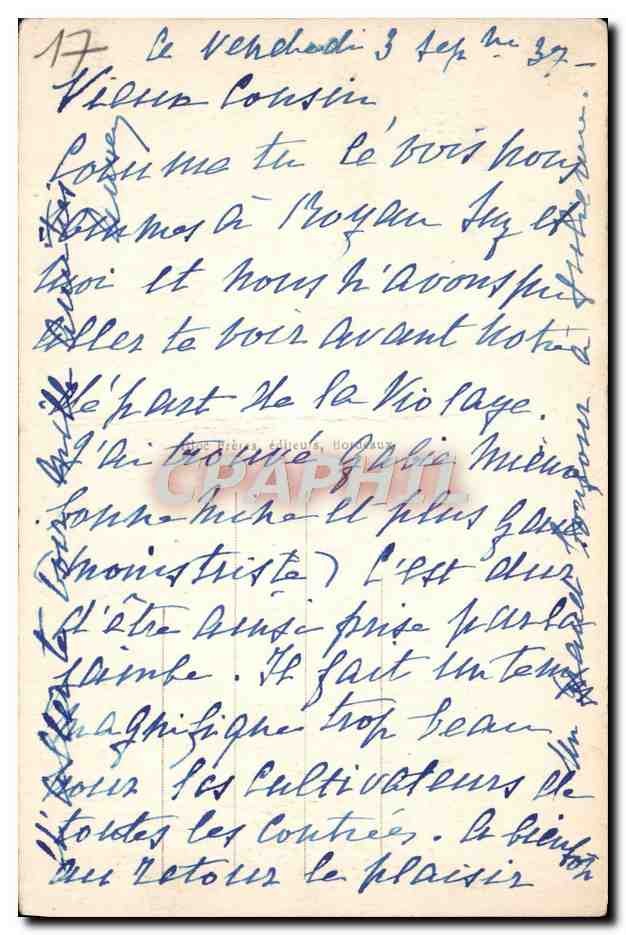 17
Le Vendredi 3 Sep bre 37 -
Vieux Cousin
Comme tu le vois nous
sommes à Royan Suz et
moi et nous n'avons pu
aller te voir avant notre
départ de la Violaye.
Bloc Frères, éditeurs, Bordeaux
CPAPHIL
J'ai trouvé Gabie mieux
bonne mine et plus gaie
(moins triste) C'est dur
d'être ainsi prise par la
jambe. Il fait un temps
magnifique trop beau
pour les cultivateurs de
toutes les contrées. A bientôt
au retour le plaisir
Tours mille amitiés
Un grand bonjour à